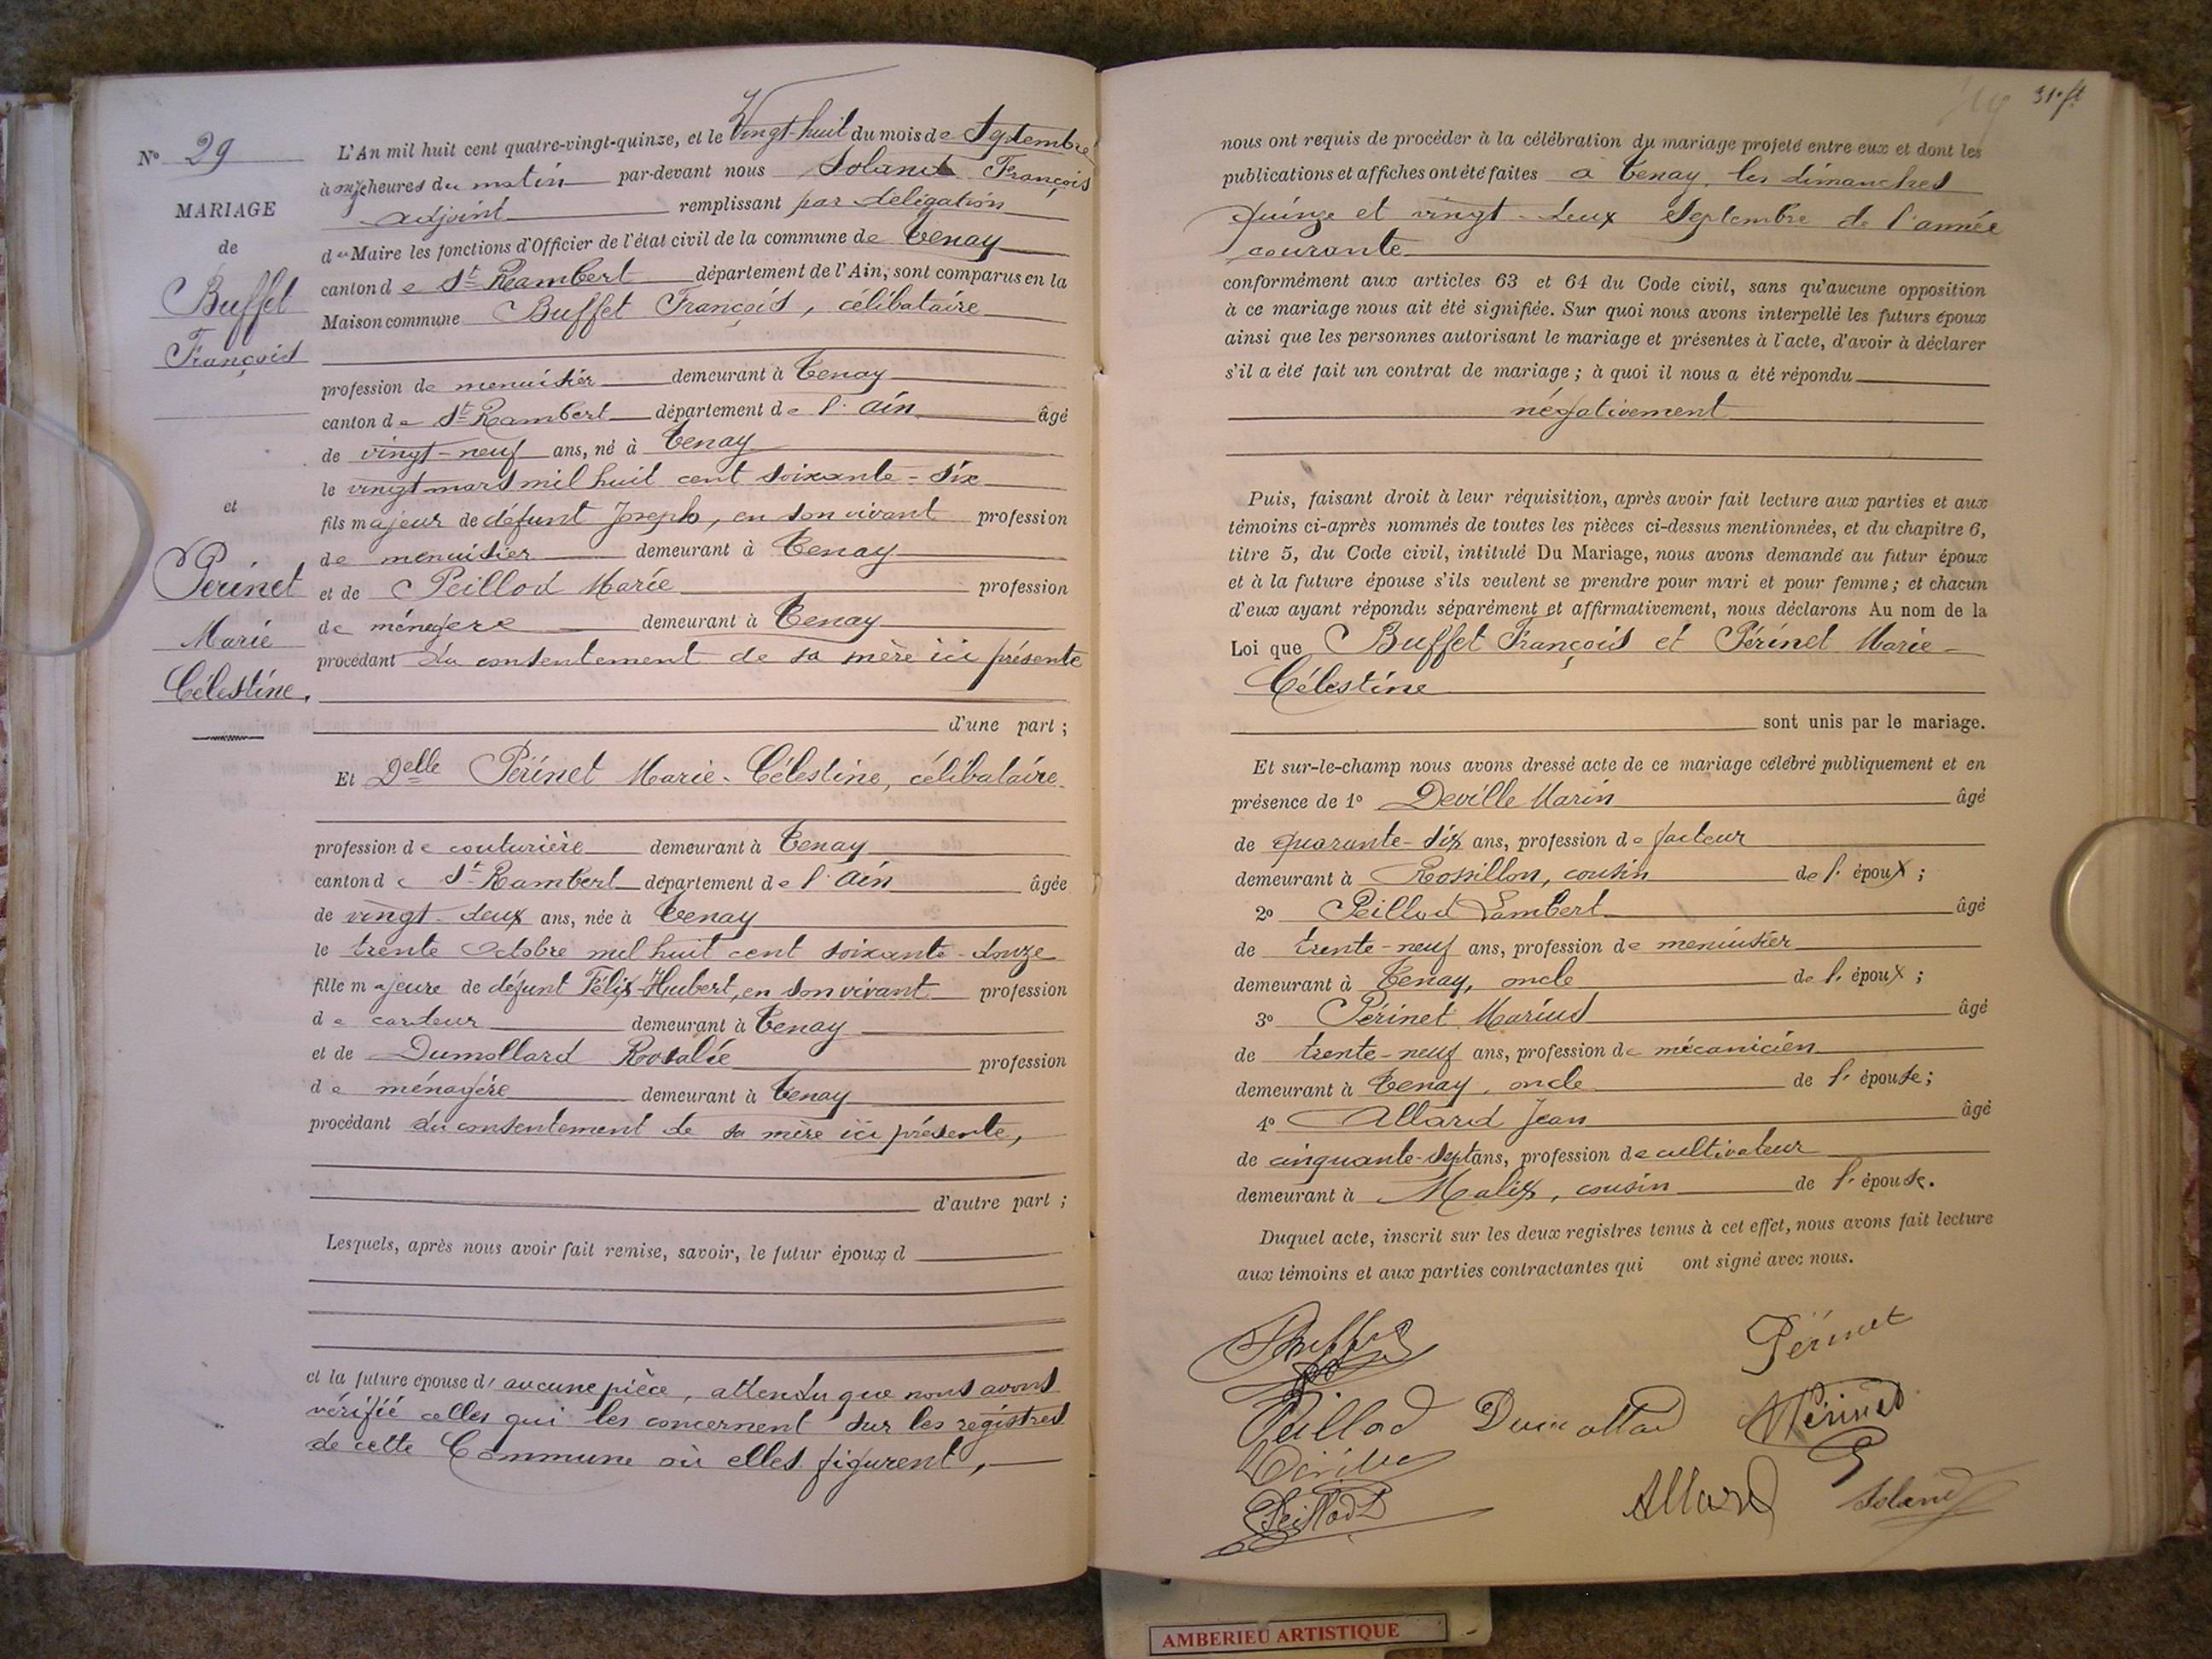 N° 29
MARIAGE
de
Buffet
François
et
Perinet
Marie
Célestine.
L'An mil huit cent quatre-vingt-quinze, et le Vingt-huit du mois de Septembre
à onze heures du matin par-devant nous Soland François
adjoint remplissant par délégation
du Maire les fonctions d'Officier de l'état civil de la commune de Tenay
canton de St Rambert département de l'Ain, sont comparus en la
Maison commune Buffet François, célibataire
profession de menuisier demeurant à Tenay
canton de St Rambert département de l'Ain âgé
de vingt-neuf ans, né à Tenay
le vingt mars mil huit cent soixante-six
fils majeur de défunt Joseph, en son vivant profession
de menuisier demeurant à Tenay
et de Peillod Marie profession
de ménagère demeurant à Tenay
procédant du consentement de sa mère ici présente
d'une part ;
Et Delle Périnet Marie-Célestine, célibataire
profession de couturière demeurant à Tenay
canton de St Rambert département de l'Ain âgée
de vingt-deux ans, née à Tenay
le trente Octobre mil huit cent soixante-douze
fille majeure de défunt Félix-Hubert, en son vivant profession
de cardeur demeurant à Tenay
et de Dumollard Rosalie profession
de ménagère demeurant à Tenay
procédant du consentement de sa mère ici présente,
d'autre part ;
Lesquels, après nous avoir fait remise, savoir, le futur époux d
et la future épouse d'aucune pièce, attendu que nous avons
vérifié celles qui les concernent sur les registres
de cette Commune où elles figurent,
31e ft
nous ont requis de procéder à la célébration du mariage projeté entre eux et dont les
publications et affiches ont été faites à Tenay, les dimanches
quinze et vingt-deux Septembre de l'année
courante
conformément aux articles 63 et 64 du Code civil, sans qu'aucune opposition
à ce mariage nous ait été signifiée. Sur quoi nous avons interpellé les futurs époux
ainsi que les personnes autorisant le mariage et présentes à l'acte, d'avoir à déclarer
s'il a été fait un contrat de mariage ; à quoi il nous a été répondu
négativement
Puis, faisant droit à leur réquisition, après avoir fait lecture aux parties et aux
témoins ci-après nommés de toutes les pièces ci-dessus mentionnées, et du chapitre 6,
titre 5, du Code civil, intitulé Du Mariage, nous avons demandé au futur époux
et à la future épouse s'ils veulent se prendre pour mari et pour femme ; et chacun
d'eux ayant répondu séparément et affirmativement, nous déclarons Au nom de la
Loi que Buffet François et Périnet Marie-
Célestine
sont unis par le mariage.
Et sur-le-champ nous avons dressé acte de ce mariage célébré publiquement et en
présence de 1° Deville Marin âgé
de quarante-six ans, profession de facteur
demeurant à Rossillon, cousin de l'époux ;
2° Peillod Lambert âgé
de trente-neuf ans, profession de menuisier
demeurant à Tenay, oncle de l'époux ;
3° Périnet Marius âgé
de trente-neuf ans, profession de mécanicien
demeurant à Tenay, oncle de l'épouse ;
4° Allard Jean âgé
de cinquante-sept ans, profession de cultivateur
demeurant à Malix, cousin de l'épouse.
Duquel acte, inscrit sur les deux registres tenus à cet effet, nous avons fait lecture
aux témoins et aux parties contractantes qui ont signé avec nous.
Buffet Périnet
Peillod Dumollard Périnet
Deville
Peillod L Allard Soland
AMBERIEU ARTISTIQUE